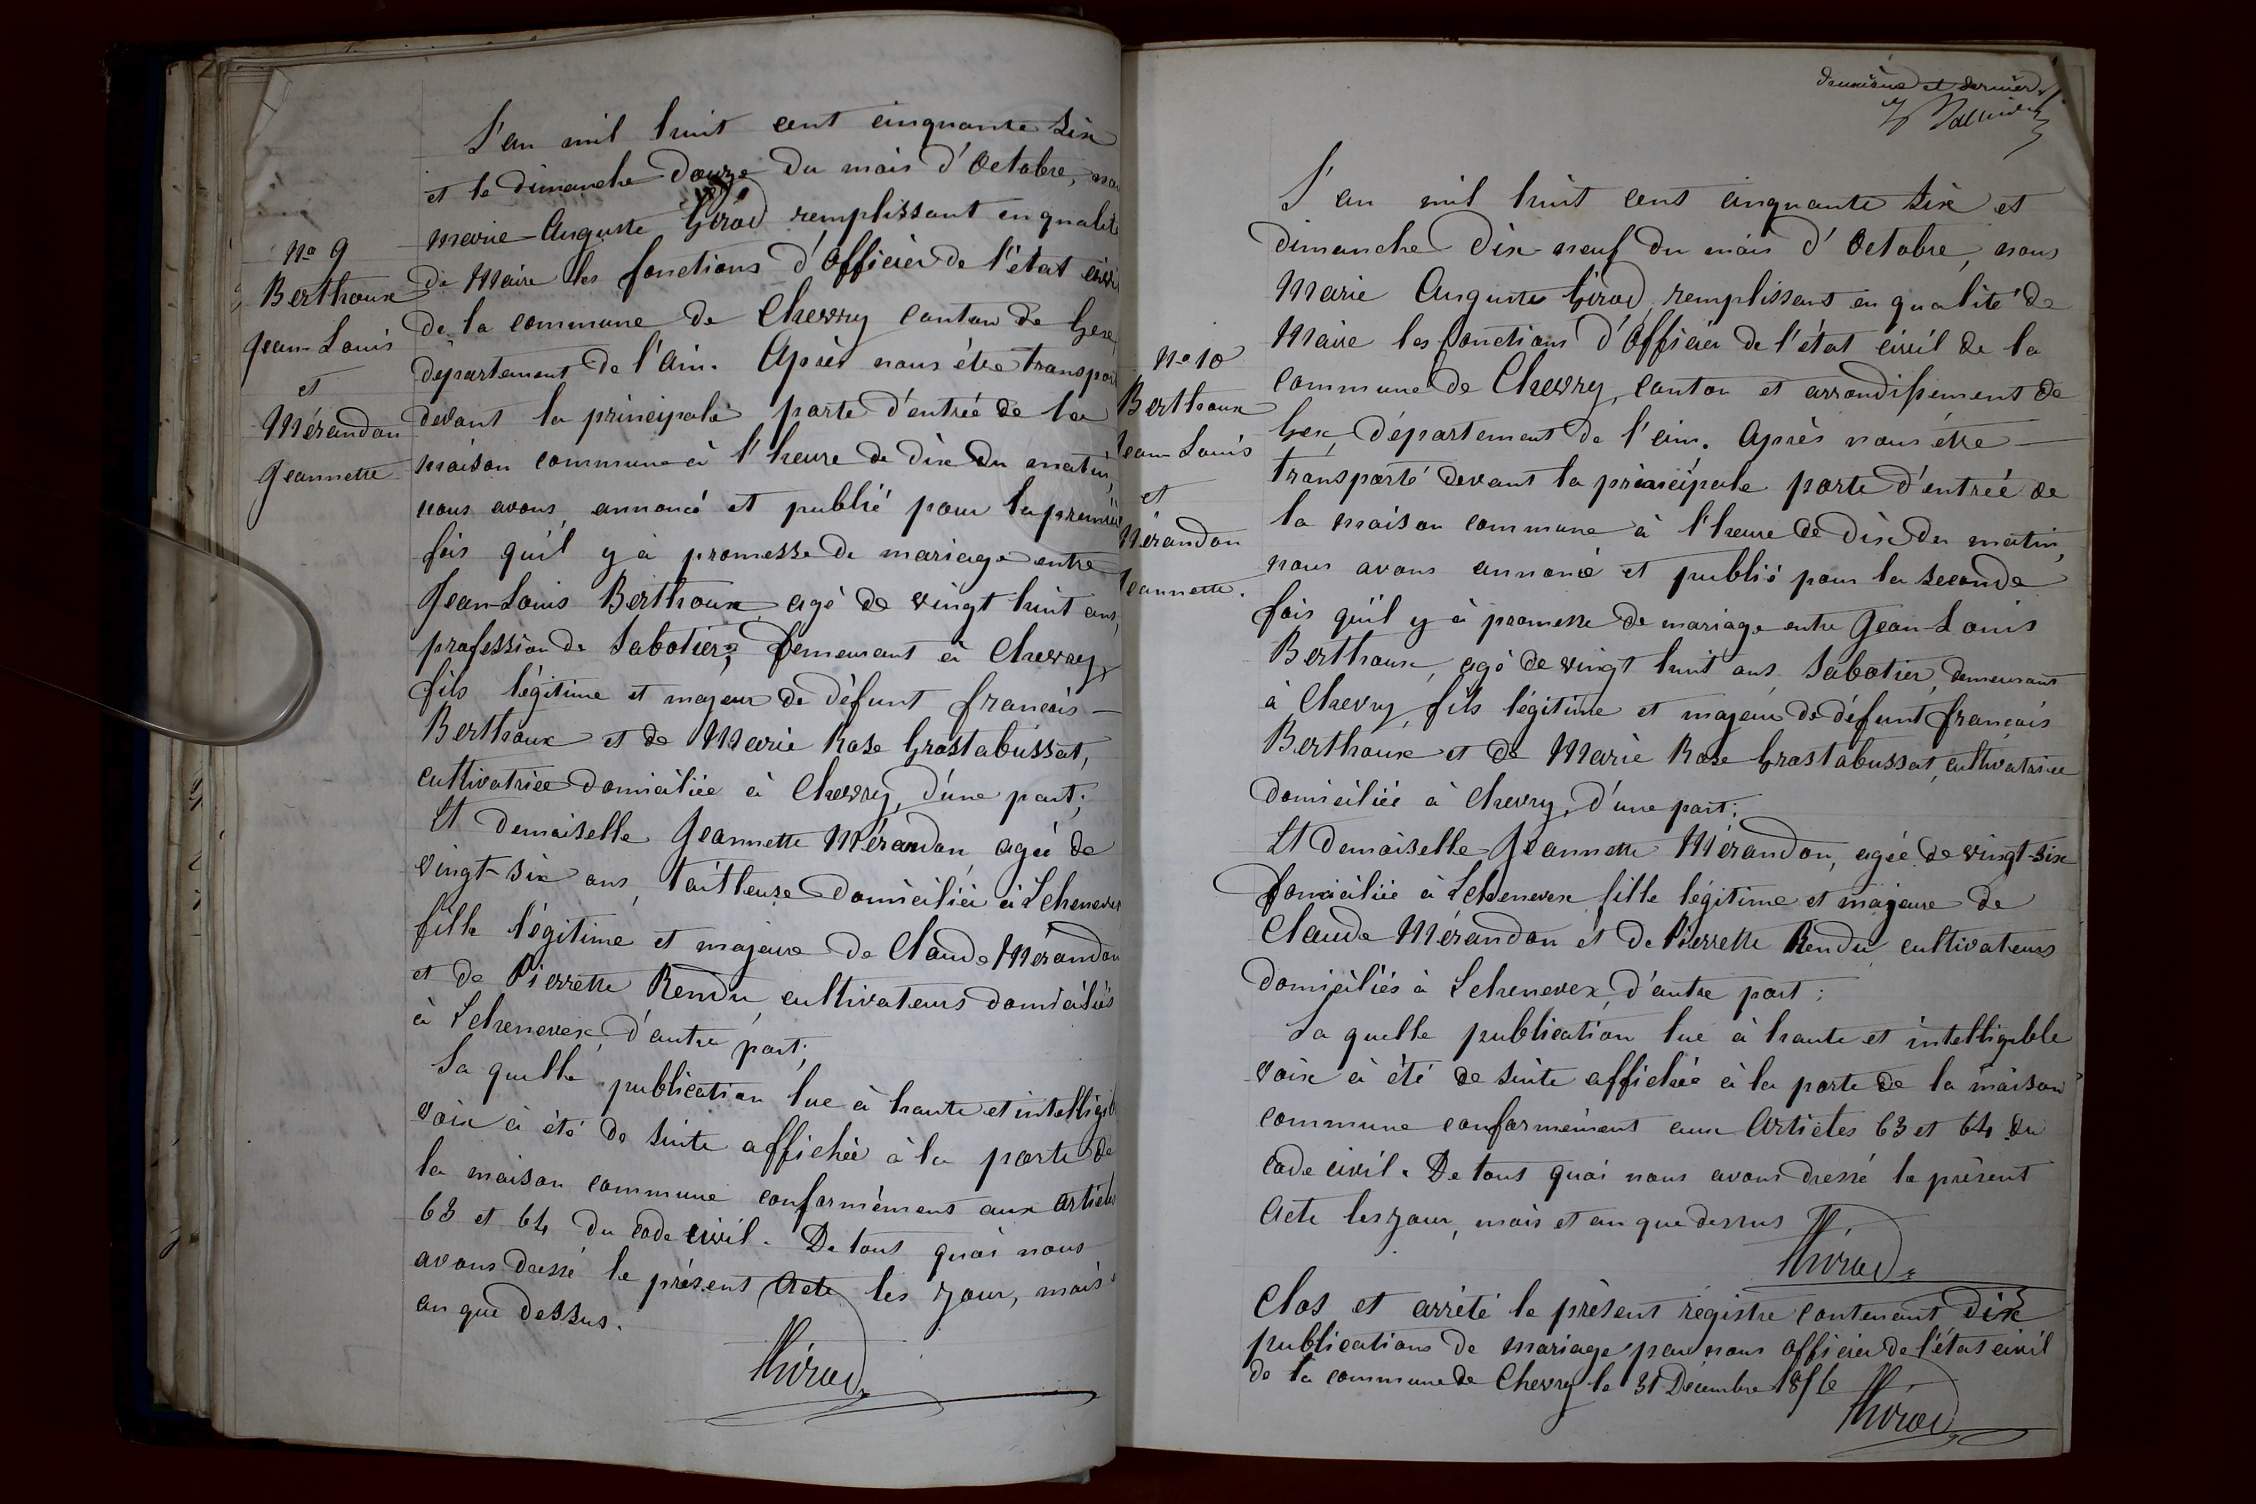 L'an mil huit cent cinquante six
et le dimanche douze du mois d'Octobre, nou
marie-Auguste Girod remplissant en qualité
de Maire les fonctions d'Officier de l'état civi
de la commune de Chevry canton de Gex,
département de l'ain. Après nous être transpor
devant la principale porte d'entrée de la
maison commune à l'heure de dix du matin,
nous avons annoncé et publié pour la premièr
fois qu'il y à promesse de mariage entre
Jean-Louis Berthoux agé de vingt huit ans,
profession de Sabotier, demeurant à Chevry,
fils légitime et majeur de défunt francois
Berthoux et de Marie Rose Grostabussat,
cultivatrice domiciliée à Chevry, d'une part;
Et demoiselle Jeannette Mérandon, agée de
vingt-six ans, tailleuse domiciliée à Echenevex
fille légitime et majeure de Claude Mérandon
et de Pierrette Rendu, cultivateurs domiciliés
à Echenevex, d'autre part;
La quelle publication lue à haute et intelligib
voix à été de suite affichée à la porte de
la maison commune conformément aux articles
63 et 64 du code civil. De tout quoi nous
avons dressé le présent Acte les jour, mois
an que dessus.
Girod
No 9
Berthoux
Jean-Louis
et
Mérandon
Jeannette
deuxième et dernier
L'an mil huit cent cinquante six et
dimanche dix-neuf du mois d'Octobre, nous
Marie Auguste Girod, remplissant en qualité de
Maire les fonctions d'Officier de l'état civil de la
commune de Chevry, canton et arrondissement de
Gex, département de l'ain. Après nous être
transporté devant la principale porte d'entrée de
la maison commune à l'heure de dix du matin,
nous avons annoncé et publié pour la seconde
fois qu'il y à promesse de mariage entre Jean-Louis
Berthoux, agé de vingt huit ans, Sabotier, demeurant
à Chevry, fils légitime et majeur de défunt francois
Berthoux et de Marie Rose Grostabussat, cultivatrice
domiciliée à Chevry, d'une part;
Et demoiselle Jeannette Mérandon, agée de vingt-six
domiciliée à Echenevex fille légitime et majeure de
Claude Mérandon et de Pierrette Rendu cultivateurs
domiciliés à Echenevex, d'autre part;
La quelle publication lue à haute et intelligible
voix à été de suite affichée à la porte de la maison
commune conformément aux Articles 63 et 64 du
code civil. De tout quoi nous avons dressé le présent
Acte les jour, mois et an que dessus
Girod
Clos et arrêté le présent régistre contenant dix
publications de mariage par nous officier de l'état civil
de la commune de Chevry le 31 Décembre 1856
Girod
No 10
Berthoux
Jean-Louis
et
Mérandon
Jeannette.